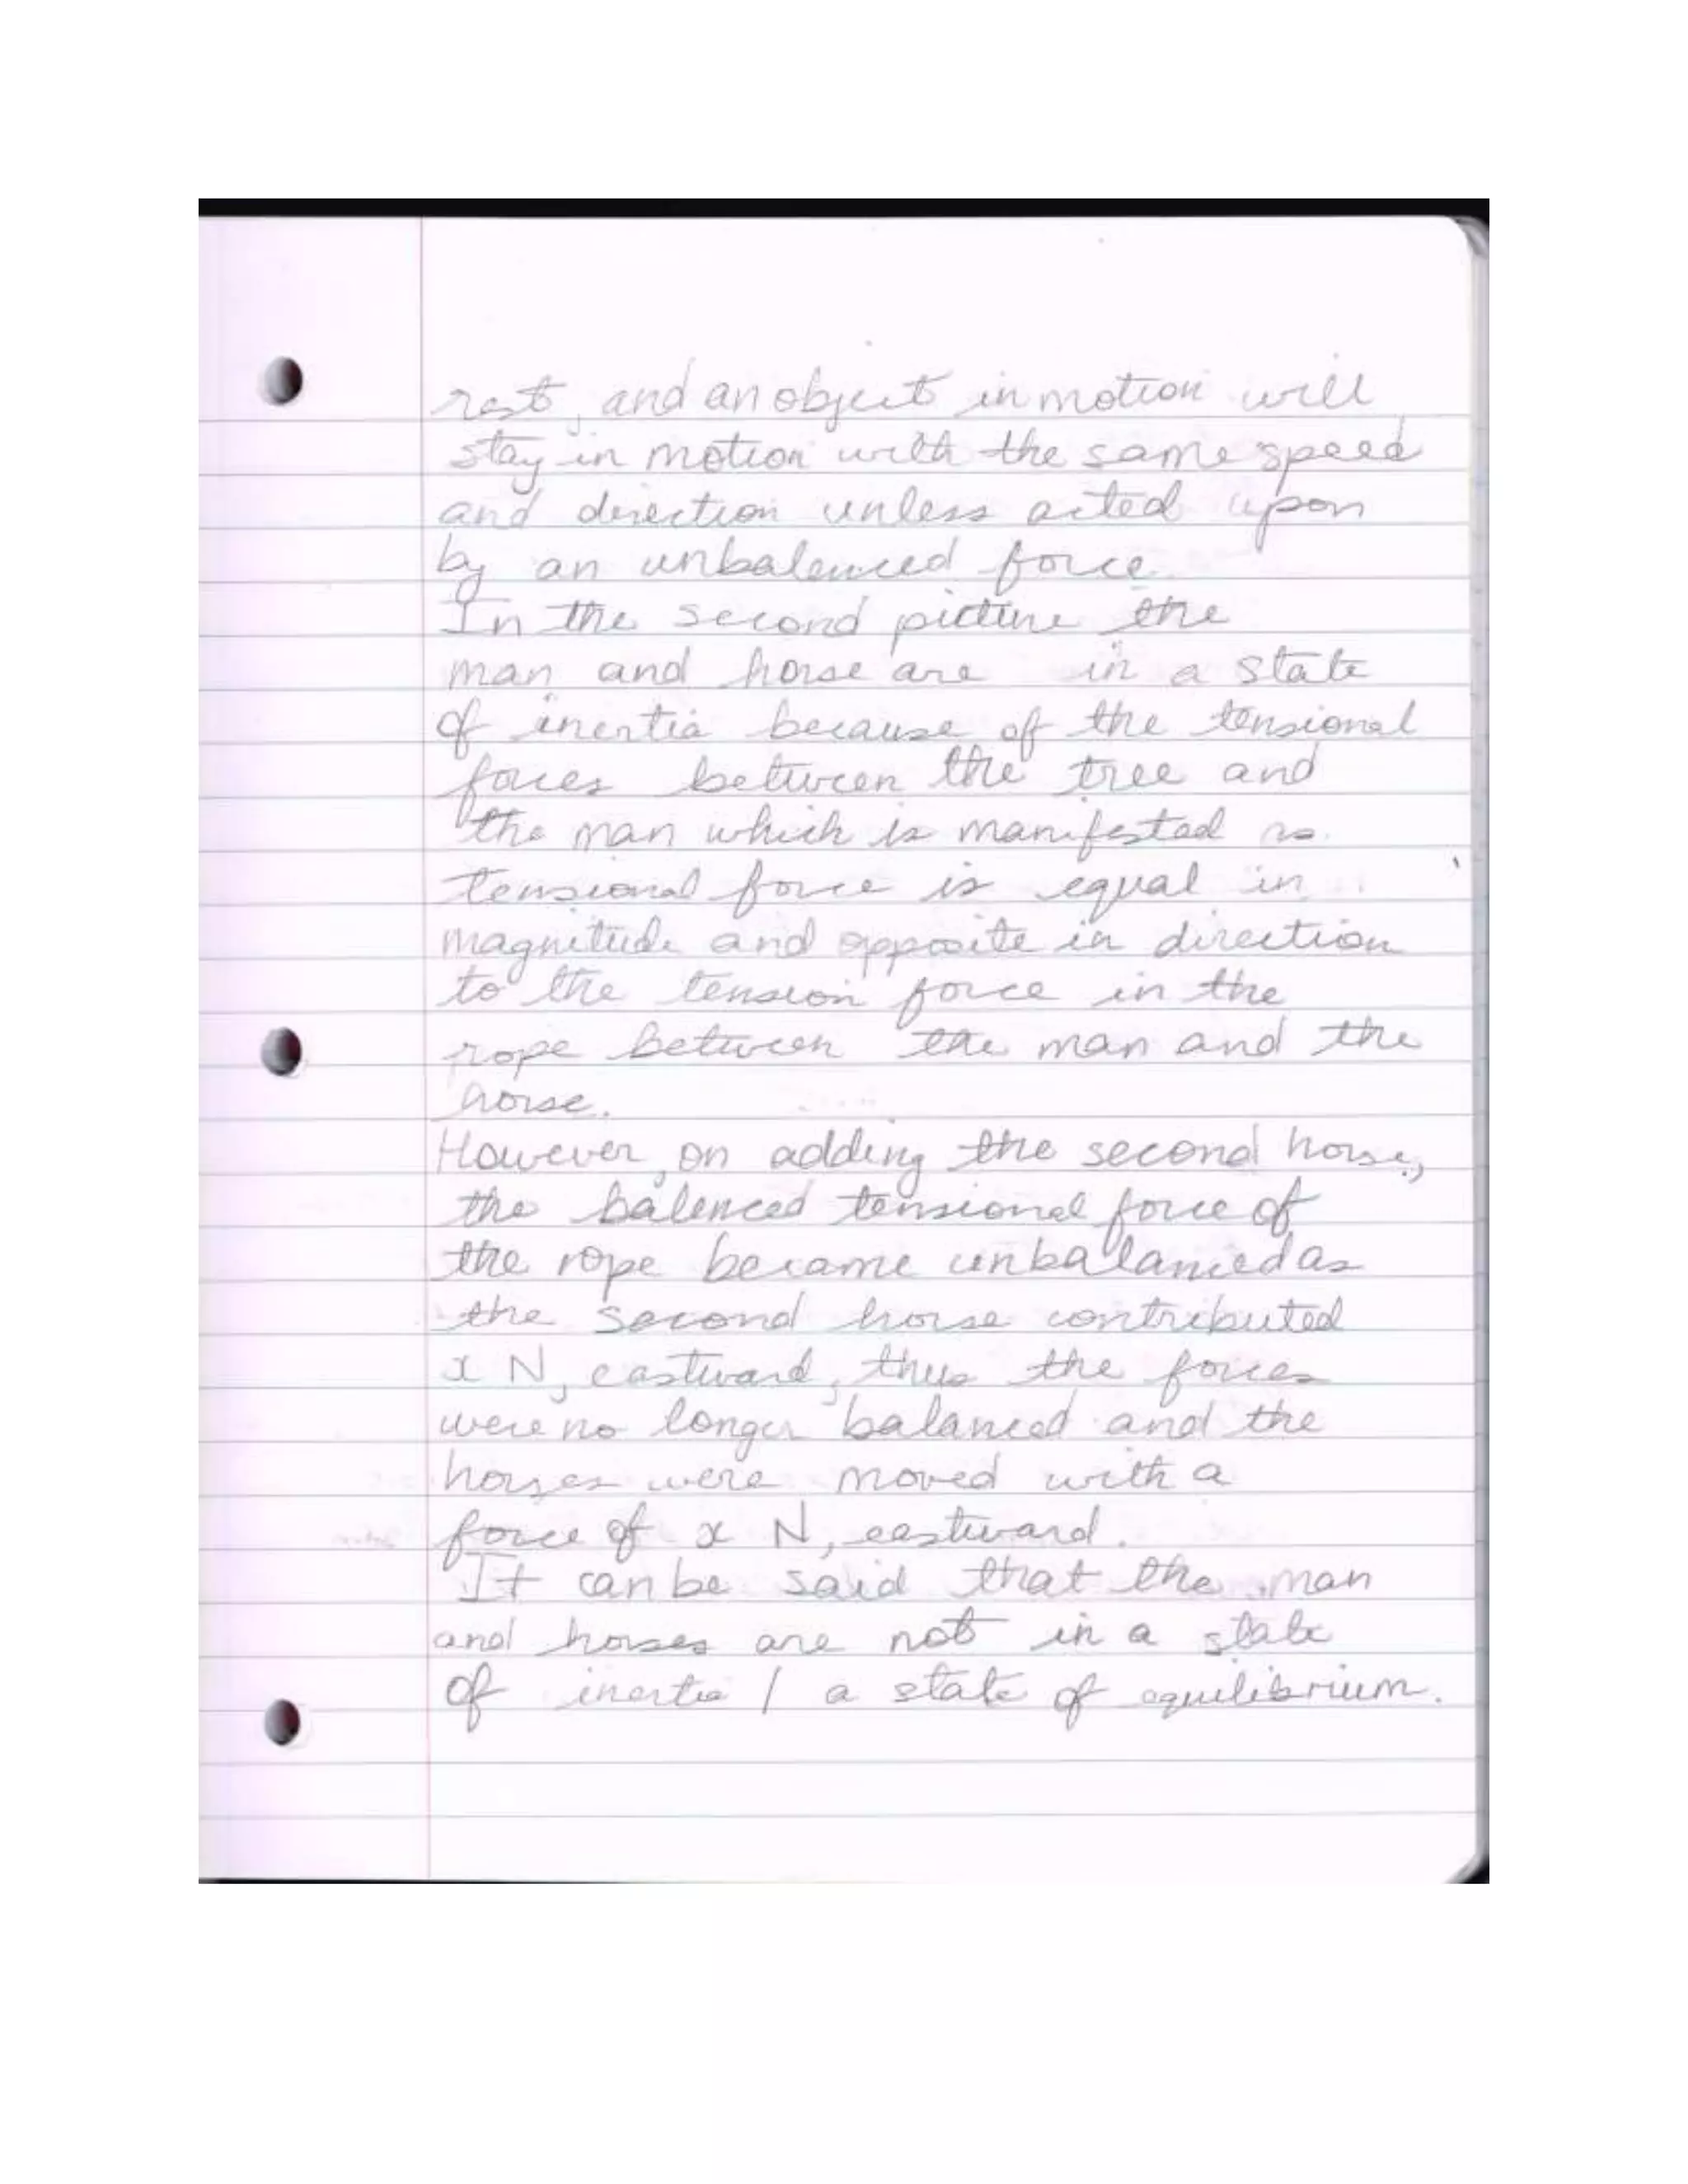 rest, and an object in motion will
stay in motion with the same speed
and direction unless acted upon
by an unbalenced force.
In the second picture the
man and horse are in a state
of inertia because of the tensional
forces between the tree and
the man which is manifested as
tensional force is equal in
magnitude and opposite in direction
to the tension force in the
rope between the man and the
horse.
However, on adding the second horse,
the balenced tensional force of
the rope became unbalanced as
the second horse contributed
x N, eastward, thus the forces
were no longer balanced and the
horses were moved with a
force of x N, eastward.
It can be said that the man
and horses are not in a state
of inertia / a state of equilibrium.